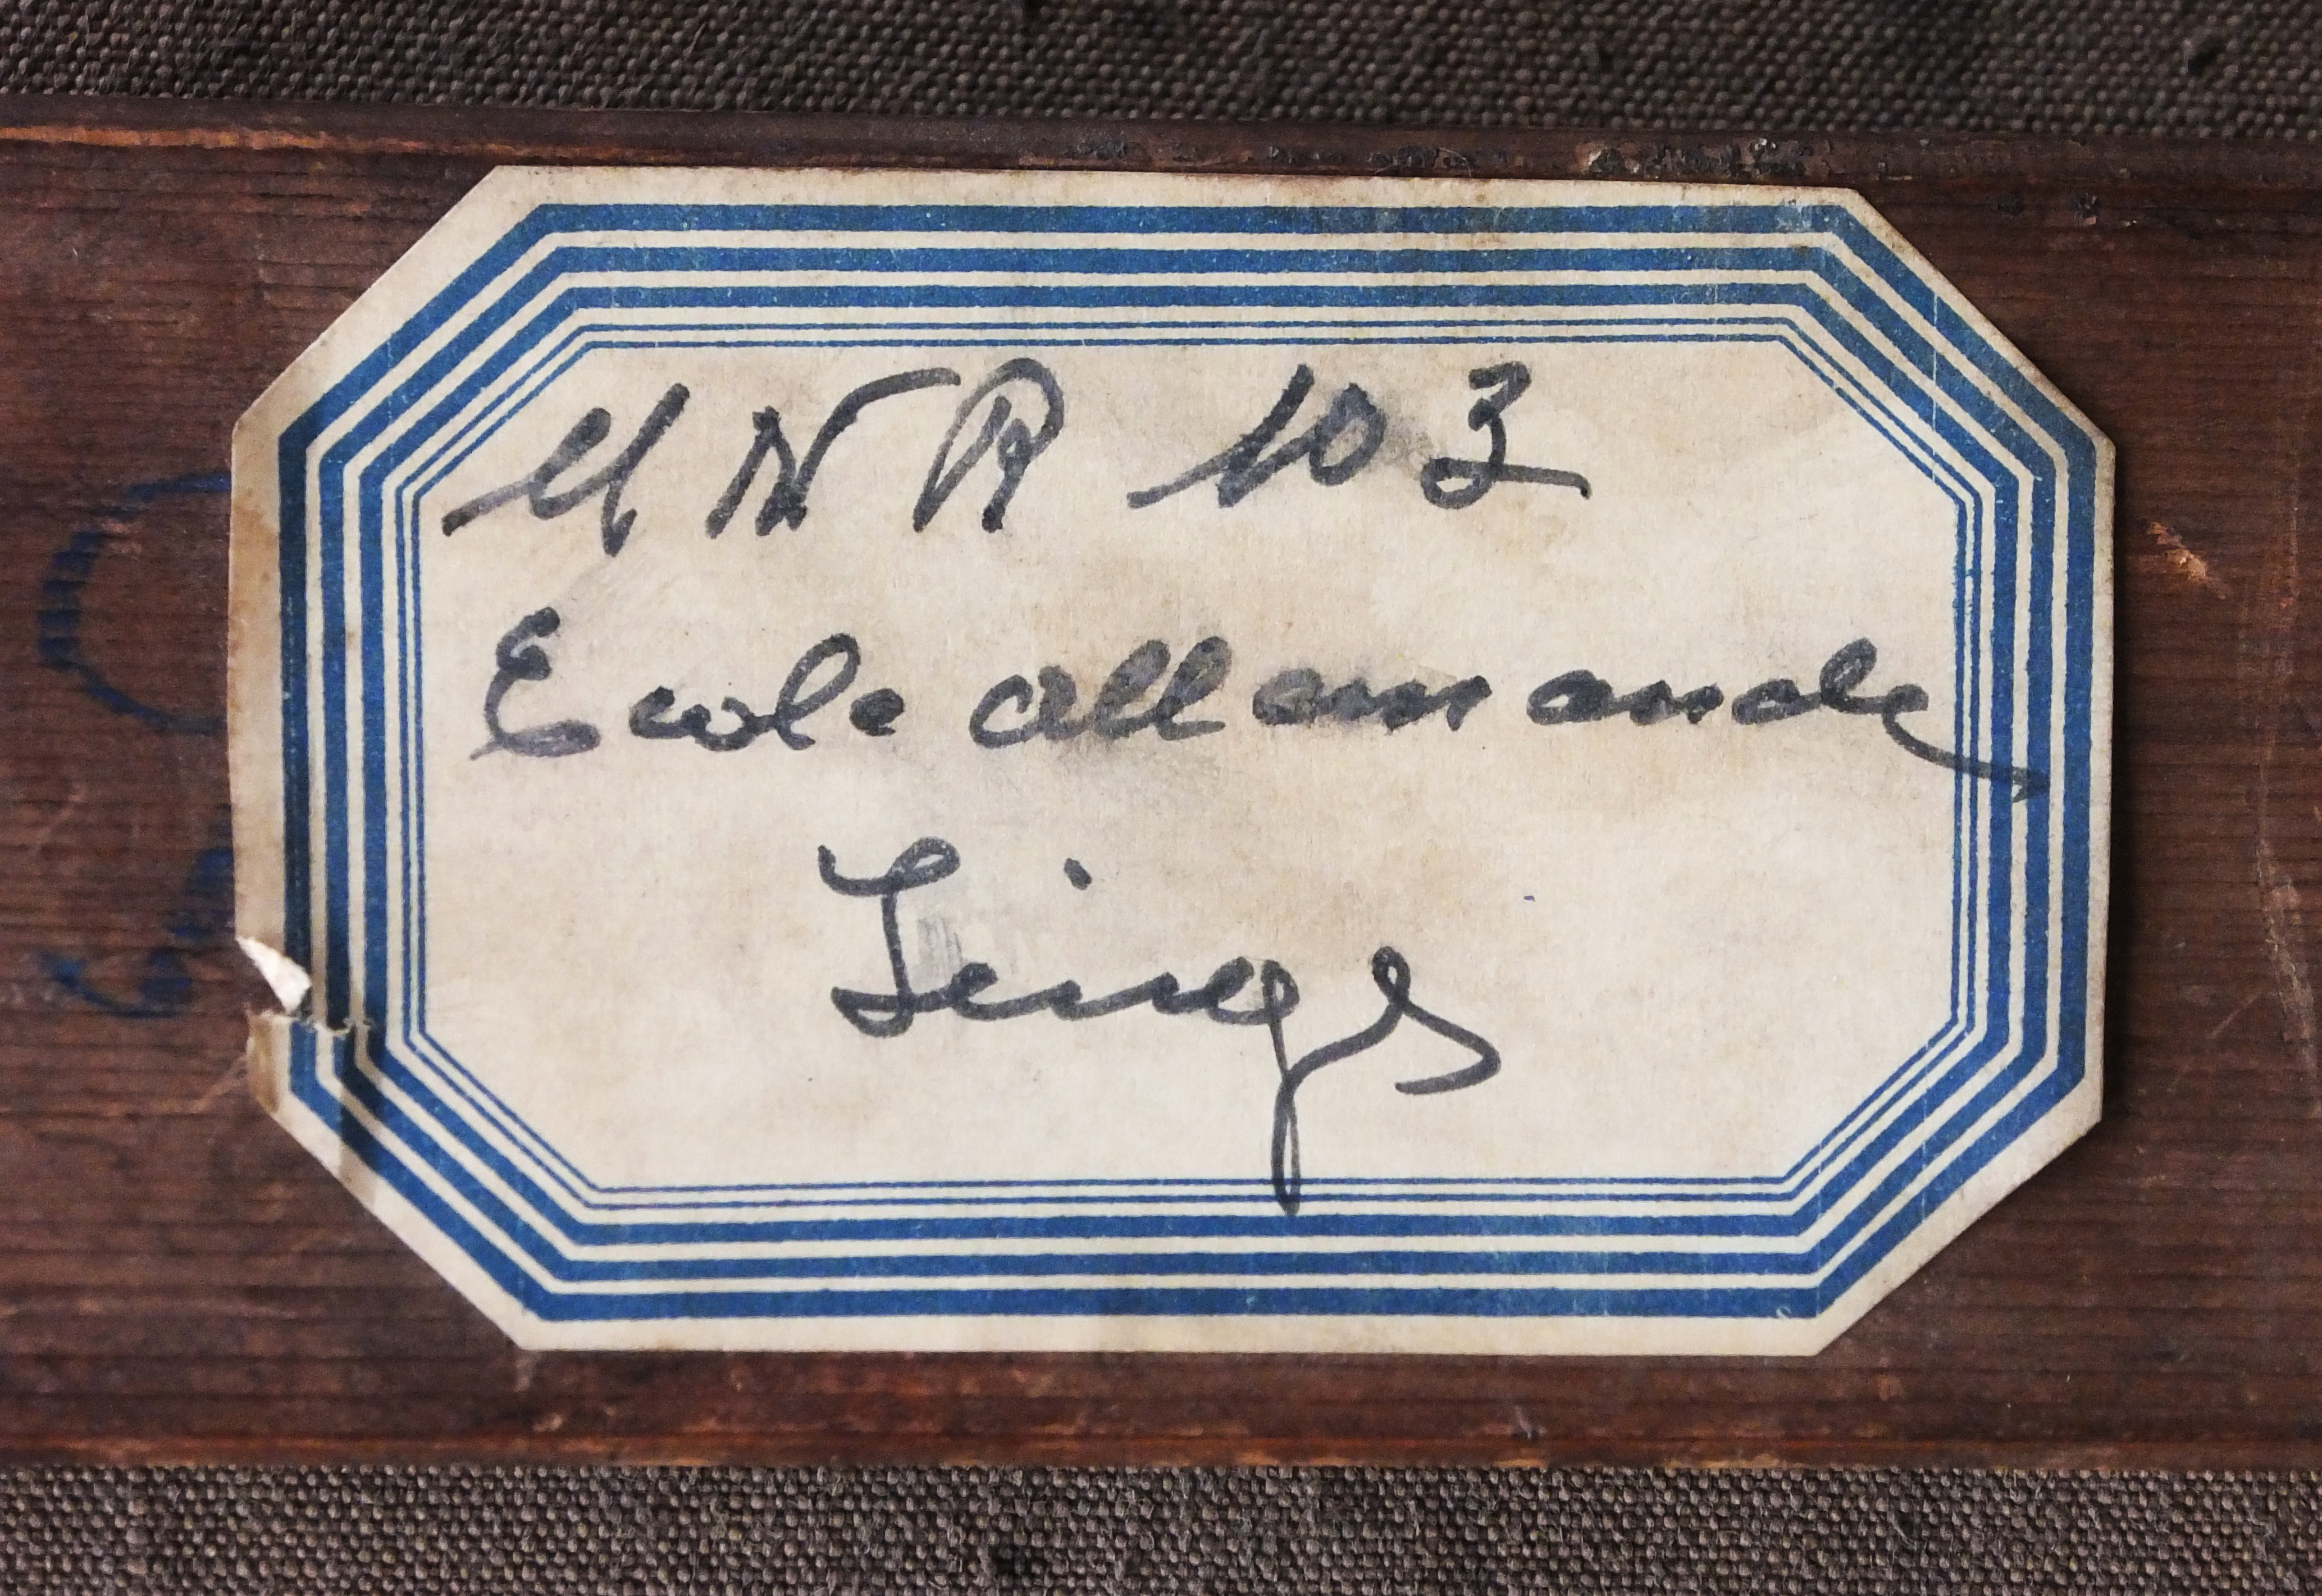 MNR 103
Ecole allemande